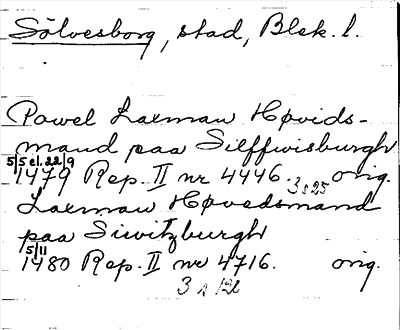 Sölvesborg, stad, Blek. l.
Powel Laxman Høvids-
mand paa Sielffwisburgh
5/5 el. 22/9
1479 Rep. II nr 4446. orig.
3 s 25
Laxman Høvedsmand
paa Siwitzburgh
5/11
1480 Rep. II nr 4716. orig.
3 s